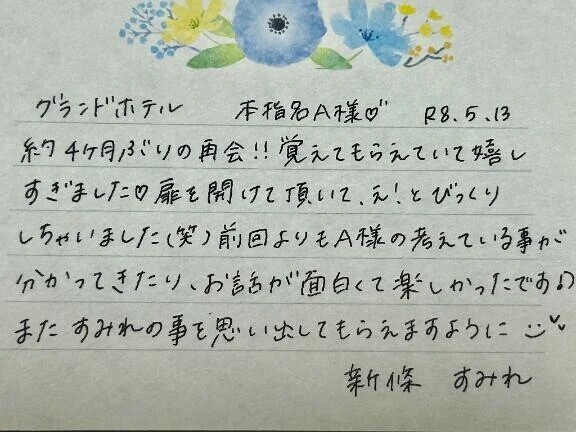 グランドホテル 本指名A様♡ R8.5.13
約4ケ月ぶりの再会!! 覚えてもらえていて嬉し
すぎました♡扉を開けて頂いて、え!とびっくり
しちゃいました(笑)前回よりもA様の考えている事が
分かってきたり、お話が面白くて楽しかったです♪
またすみれの事を思い出してもらえますように
新條 すみれ